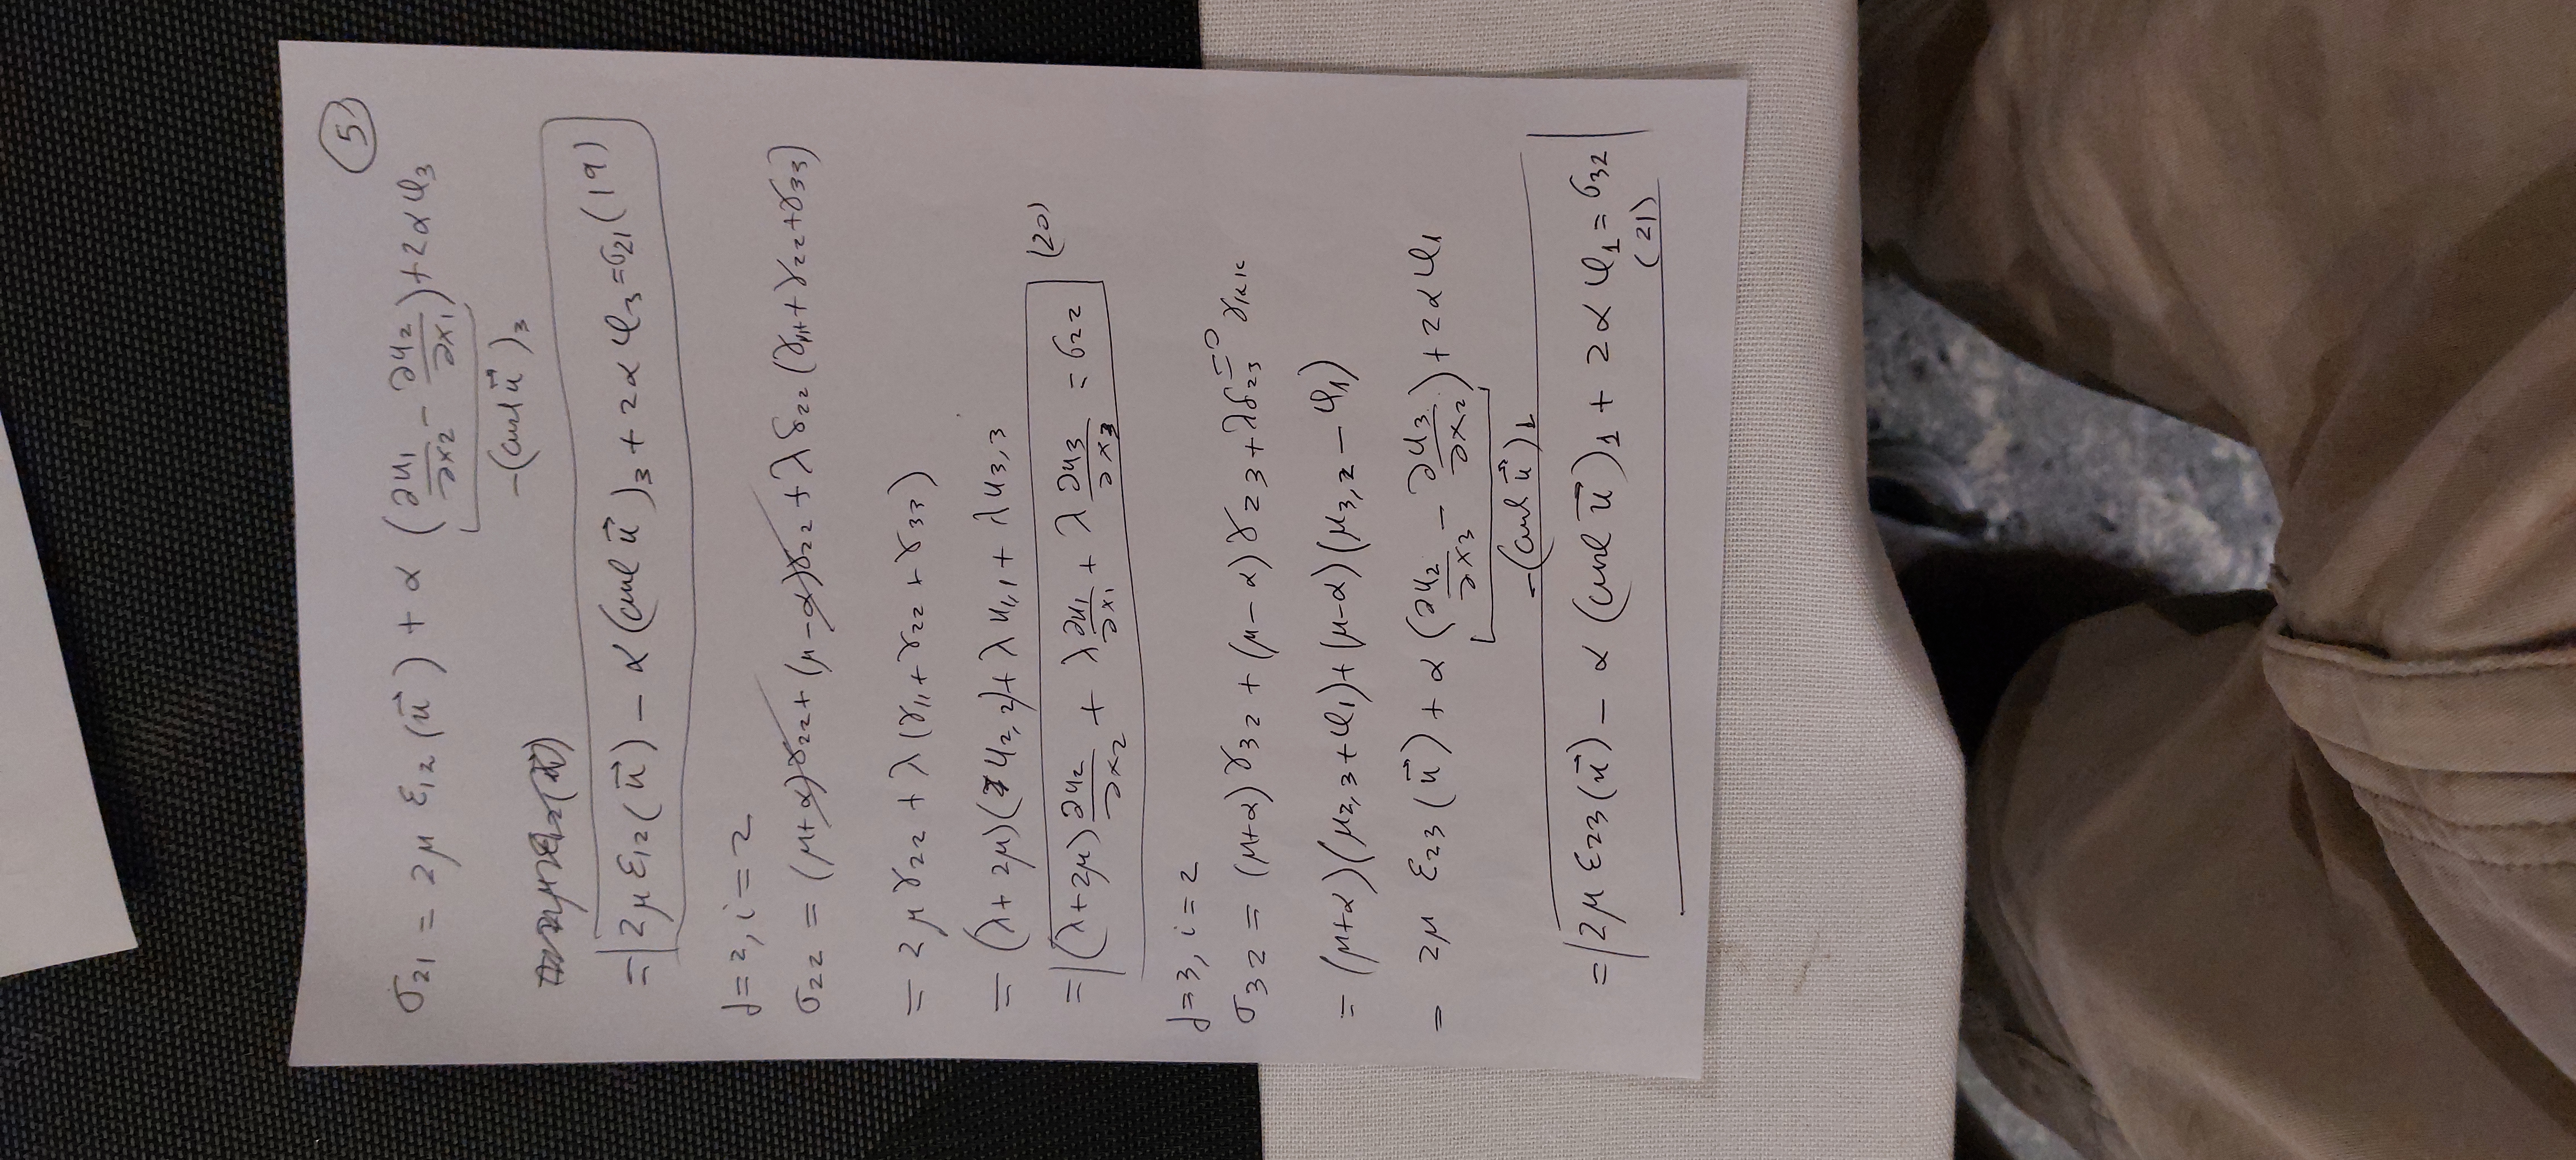 5
σ₂₁ = 2μ ε₁₂(u⃗) + α(∂u₁/∂x₂ − ∂u₂/∂x₁) + 2αφ₃
−(curl u⃗)₃
= 2με₁₂(u⃗) − α(curl u⃗)₃ + 2αφ₃ = σ₂₁ (19)
j=2, i=2
σ₂₂ = (μ+α)γ₂₂ + (μ−α)γ₂₂ + λδ₂₂(γ₁₁+γ₂₂+γ₃₃)
= 2μγ₂₂ + λ(γ₁₁+γ₂₂+γ₃₃)
= (λ+2μ)(u₂,₂) + λu₁,₁ + λu₃,₃
= (λ+2μ)∂u₂/∂x₂ + λ∂u₁/∂x₁ + λ∂u₃/∂x₃ = σ₂₂ (20)
j=3, i=2
σ₃₂ = (μ+α)γ₃₂ + (μ−α)γ₂₃ + λδ₂₃⁼⁰γₖₖ
= (μ+α)(μ₂,₃+φ₁)+(μ−α)(μ₃,₂−φ₁)
= 2μ ε₂₃(u⃗) + α(∂u₂/∂x₃ − ∂u₃/∂x₂) + 2αφ₁
−(curl u⃗)₁
= 2με₂₃(u⃗) − α(curl u⃗)₁ + 2αφ₁ = σ₃₂
(21)